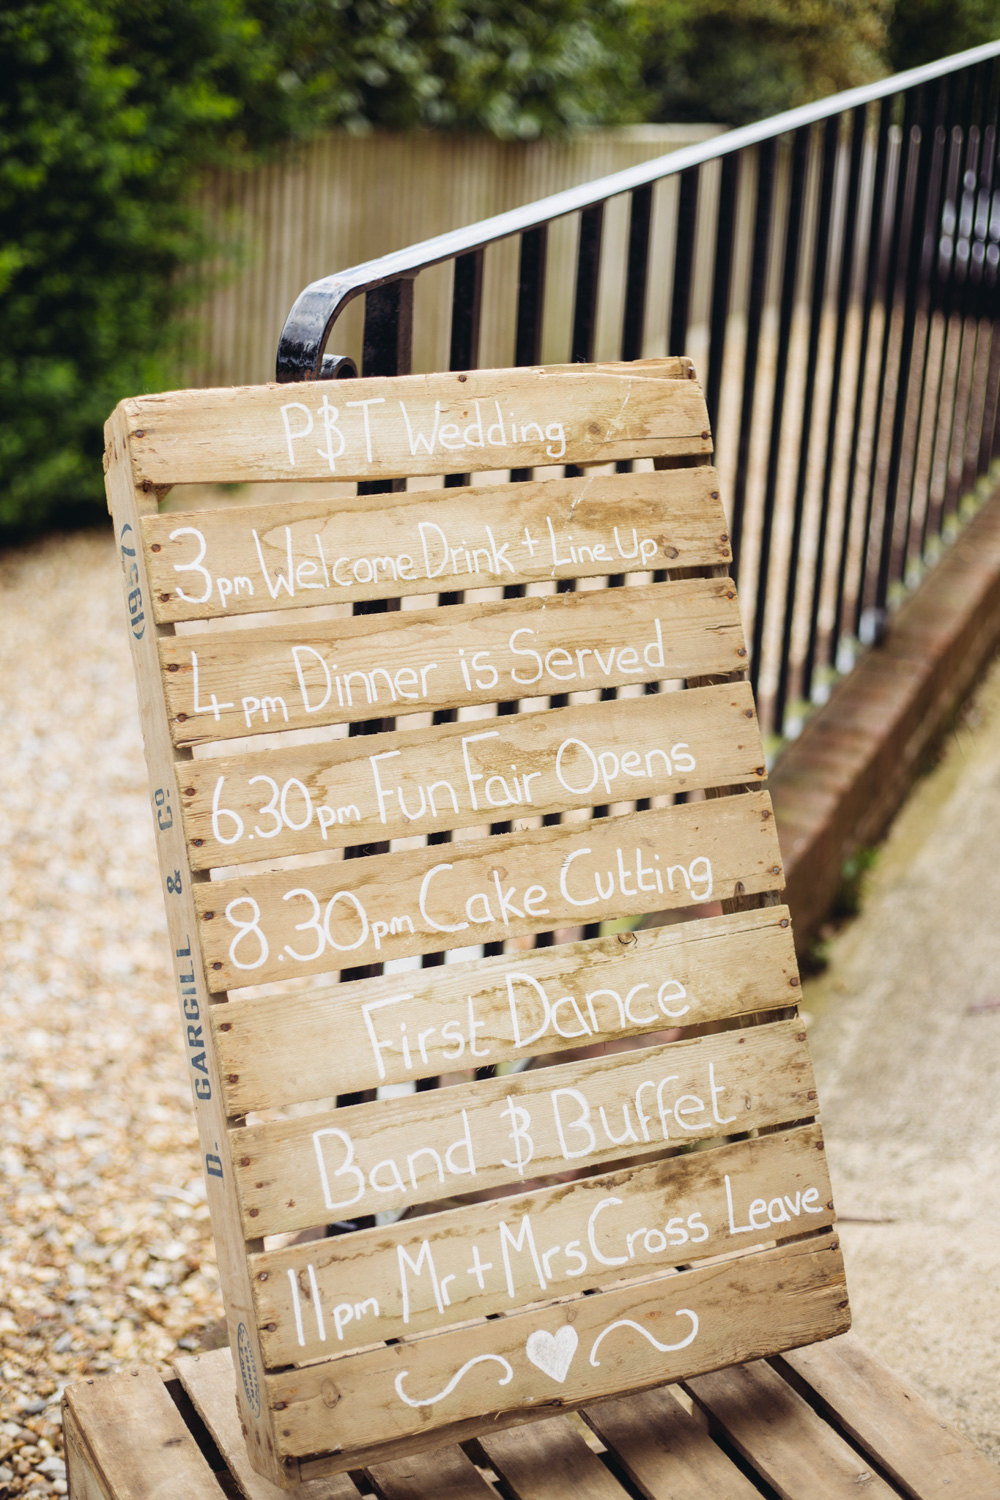 P&T Wedding
3pm Welcome Drink + Line Up
4pm Dinner is Served
6.30pm Fun Fair Opens
8.30pm Cake Cutting
First Dance
Band & Buffet
11pm Mr + Mrs Cross Leave
D. GARGILL & CO. (1957)